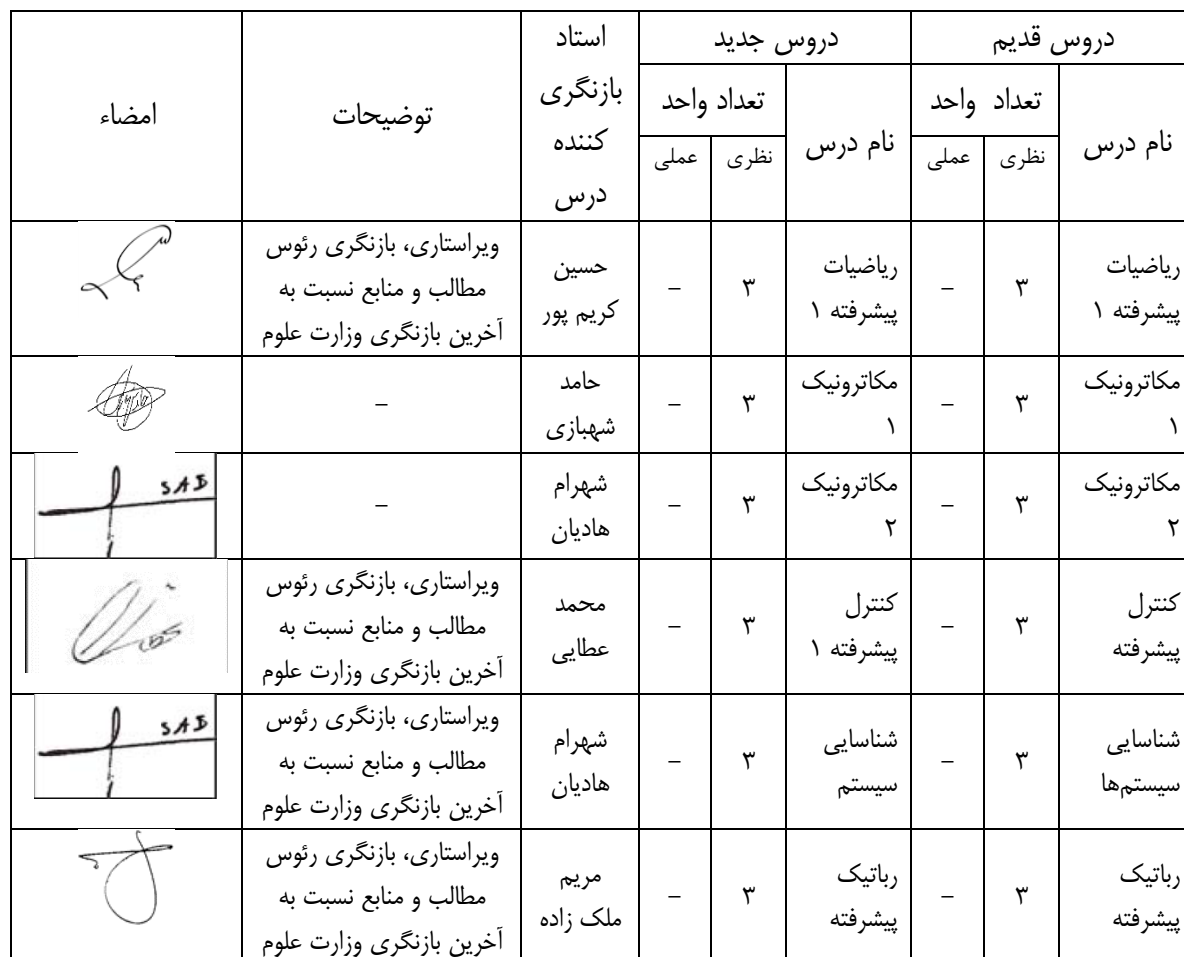 دروس قدیم
دروس جدید
استاد
بازنگری
کننده
درس
توضیحات
امضاء
نام درس
تعداد واحد
نام درس
تعداد واحد
نظری
عملی
نظری
عملی
ریاضیات
پیشرفته ۱
۳
–
ریاضیات
پیشرفته ۱
۳
–
حسین
کریم پور
ویراستاری، بازنگری رئوس
مطالب و منابع نسبت به
آخرین بازنگری وزارت علوم
مکاترونیک
۱
۳
–
مکاترونیک
۱
۳
–
حامد
شهبازی
–
مکاترونیک
۲
۳
–
مکاترونیک
۲
۳
شهرام
هادیان
–
SAB
کنترل
پیشرفته
۳
–
کنترل
پیشرفته ۱
۳
–
محمد
عطایی
ویراستاری، بازنگری رئوس
مطالب و منابع نسبت به
آخرین بازنگری وزارت علوم
شناسایی
سیستم‌ها
۳
–
شناسایی
سیستم
۳
–
شهرام
هادیان
ویراستاری، بازنگری رئوس
مطالب و منابع نسبت به
آخرین بازنگری وزارت علوم
SAB
رباتیک
پیشرفته
۳
–
رباتیک
پیشرفته
۳
–
مریم
ملک زاده
ویراستاری، بازنگری رئوس
مطالب و منابع نسبت به
آخرین بازنگری وزارت علوم